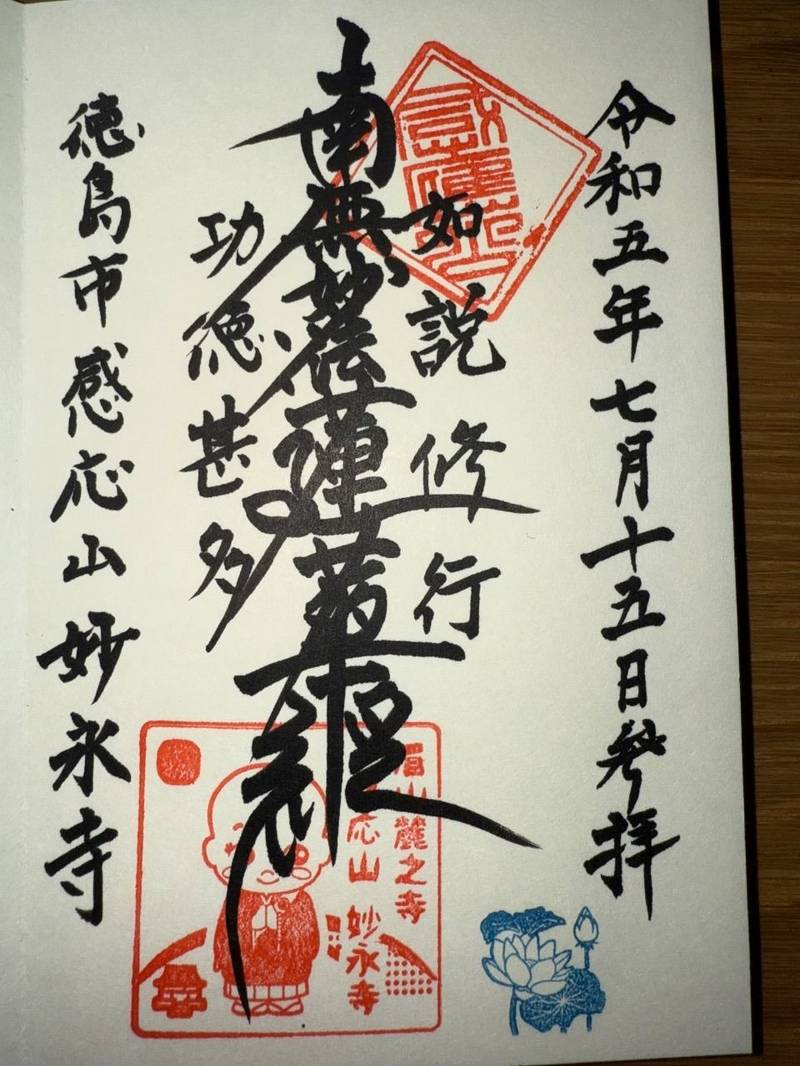 令和五年七月十五日参拝
如説修行
南無妙法蓮華經
功徳甚多
徳島市感応山妙永寺
眉山麓之寺
応山 妙永寺